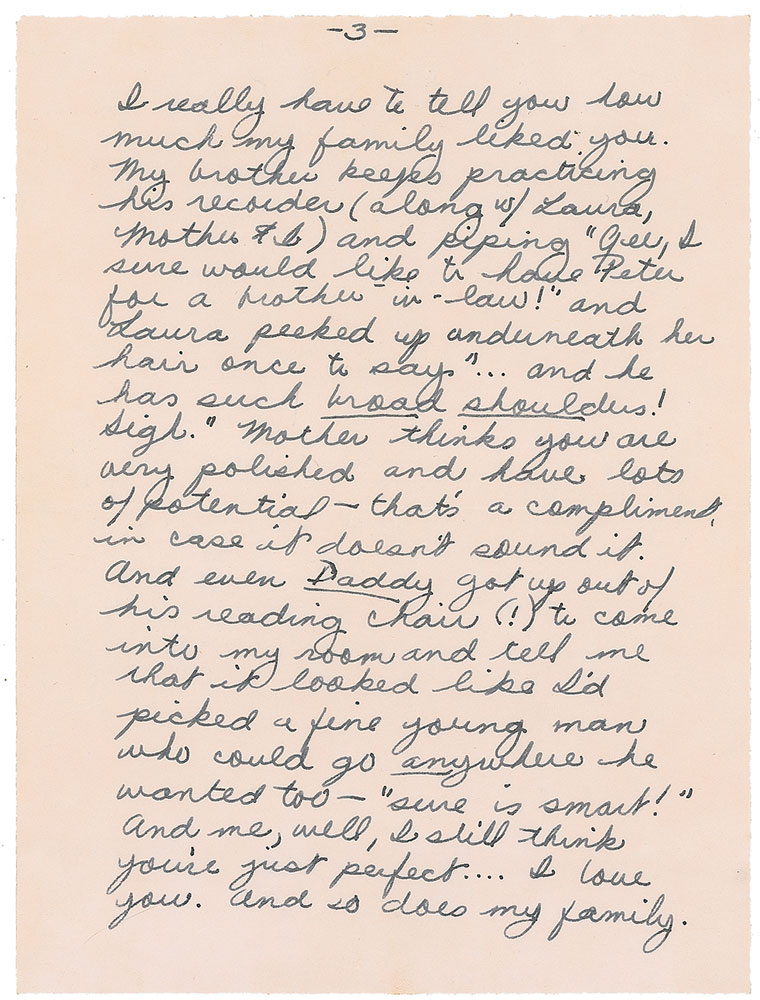 -3-
I really have to tell you how
much my family liked you.
My brother keeps practicing
his recorder (along w/ Laura,
Mother & I) and piping "Gee, I
sure would like to have Peter
for a brother-in-law!" and
Laura peeked up underneath her
hair once to say "... and he
has such broad shoulders!
Sigh." Mother thinks you are
very polished and have lots
of potential - that's a compliment,
in case it doesn't sound it.
And even Daddy got up out of
his reading chair (!) to come
into my room and tell me
that it looked like I'd
picked a fine young man
who could go anywhere he
wanted too - "sure is smart!"
And me, well, I still think
you're just perfect.... I love
you. And so does my family.